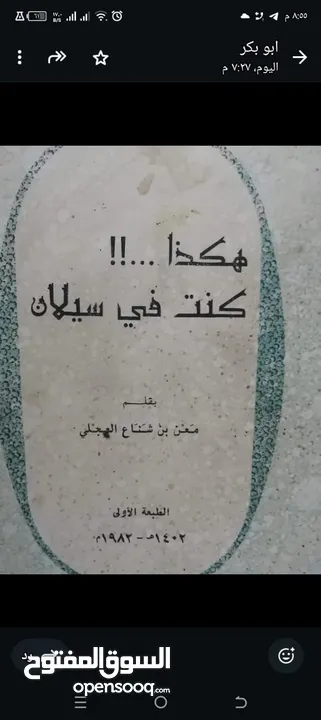 ٨:٥٥ م
ابو بكر
اليوم، ٧:٢٧ م
هكذا ...!!
كنت في سيلان
بقلم
معن بن شناع العجلي
الطبعة الأولى
١٤٠٢هـ - ١٩٨٢م
السوق المفتوح
opensooq.com